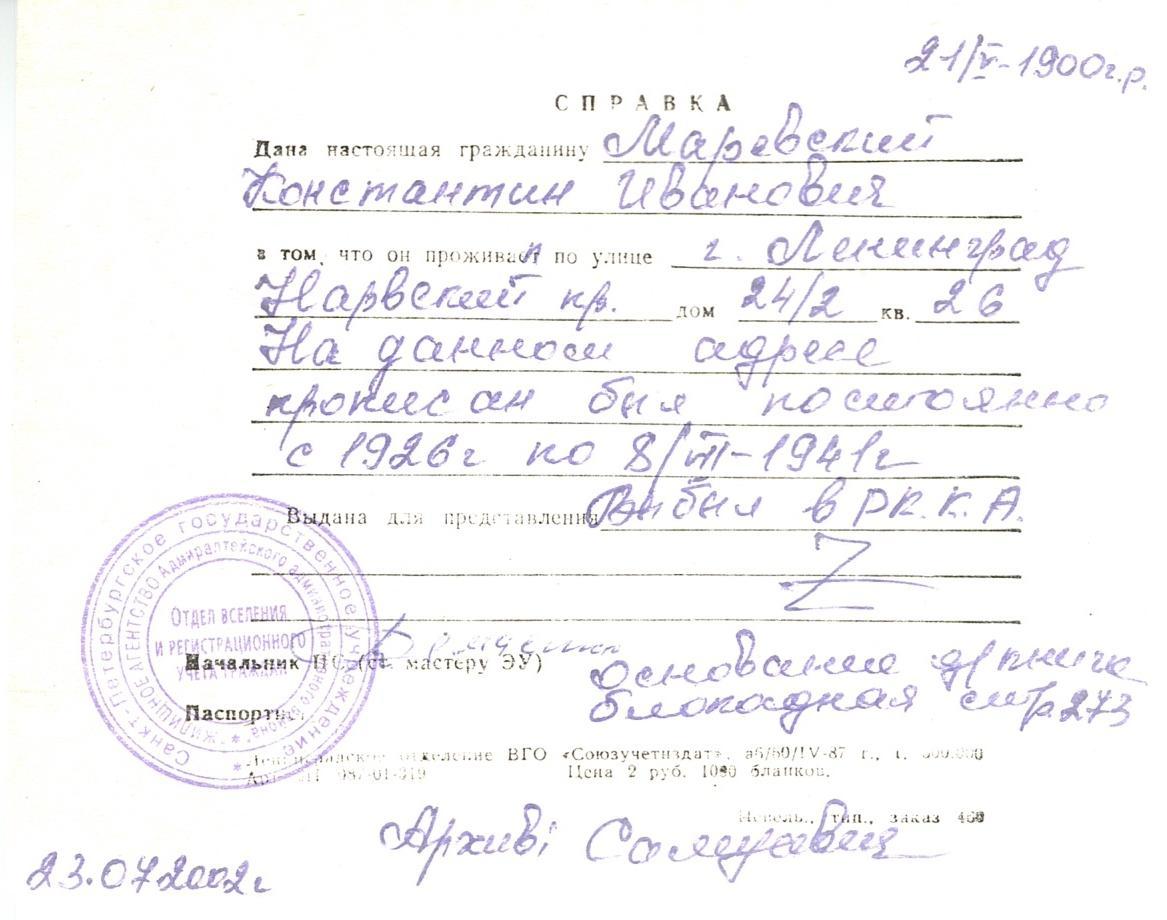 21/V-1900г.р.
СПРАВКА
Дана настоящая гражданину Маревский
Константин Иванович
в том, что он проживал по улице г. Ленинград
Нарвский пр. дом 24/2 кв. 26
На данном адресе
прописан был постоянно
с 1926г по 8/VII-1941г
Выдана для представления Выбыл в Р.К.К.А.
Z
Санкт-Петербургское государственное учреждение
ЖИЛИЩНОЕ АГЕНТСТВО Адмиралтейского административного района
ОТДЕЛ ВСЕЛЕНИЯ
И РЕГИСТРАЦИОННОГО
УЧЕТА ГРАЖДАН
Начальник ЦС (ст. мастеру ЭУ)
основание
Паспортн
блокадная стр. 273
Ленинградское отделение ВГО «Союзучетиздат», 1V-87 г., т. 300.000
Цена 2 руб. 1000 бланков.
тип., заказ
Архив:
23.07.2002г